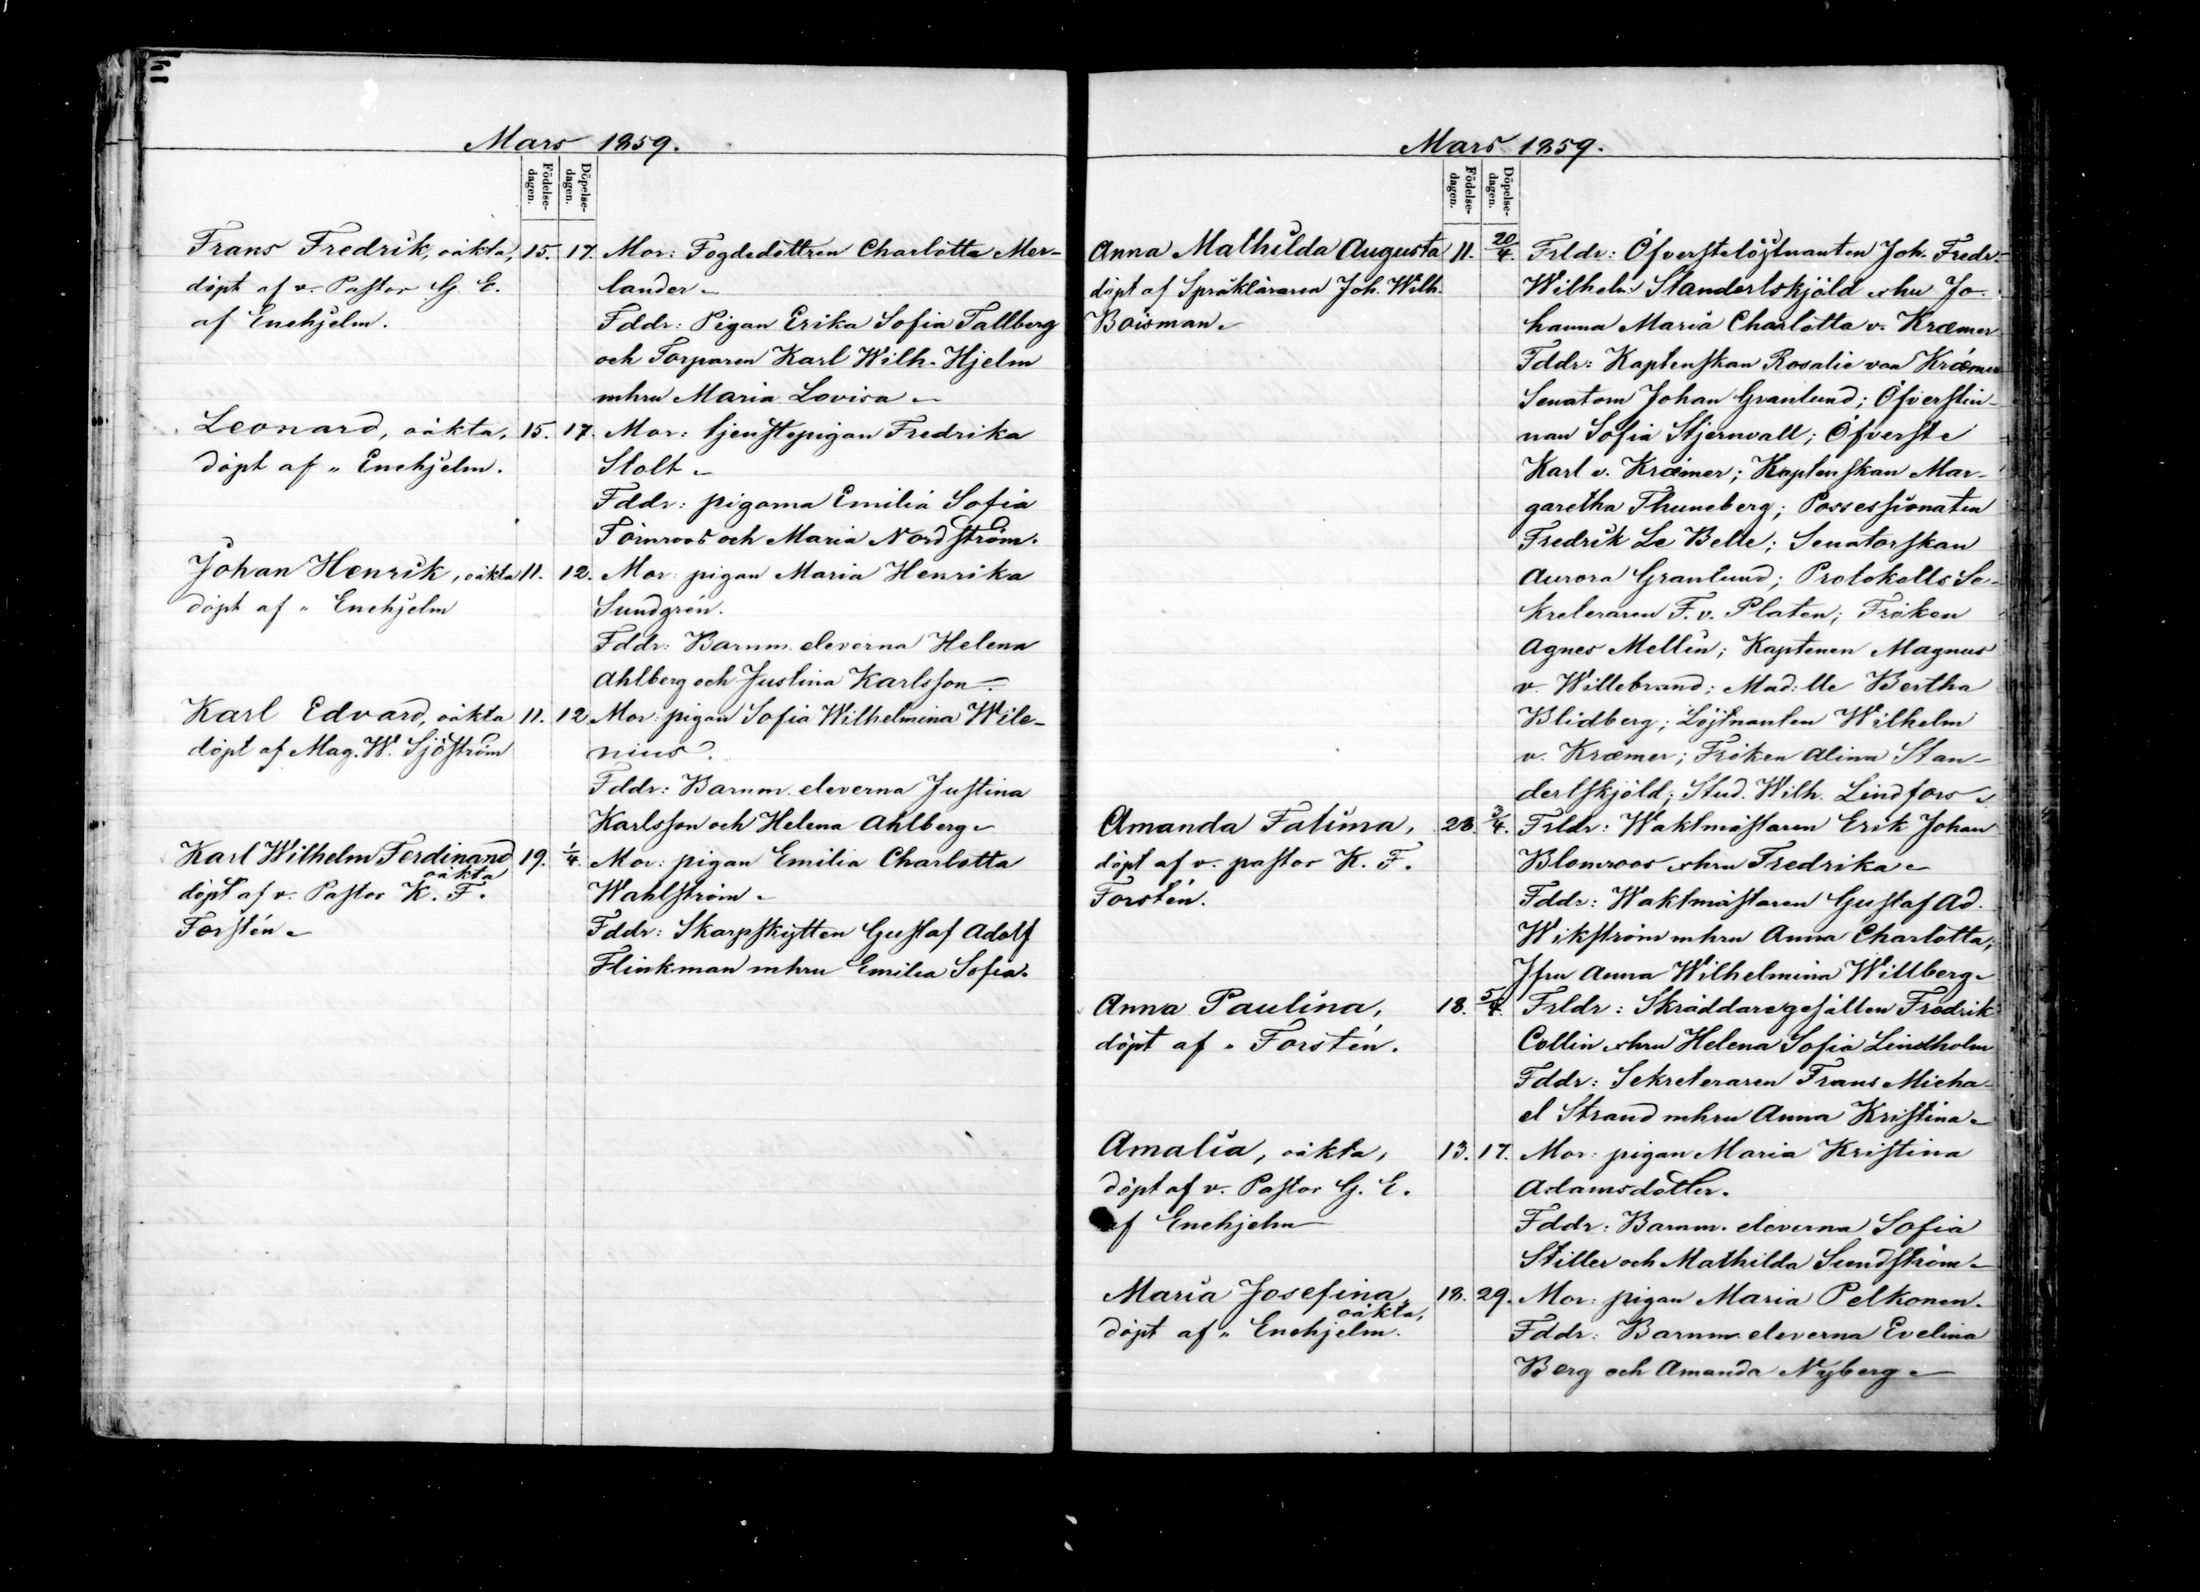 Mars 1859.
Födelse-
dagen.
Döpelse-
dagen.
Frans Fredrik, oäkta, 15. 17. Mor: Fogdedottren Charlotta Mer-
döpt af v. Pastor G. E. lander
af Enehjelm. Fddr: Pigan Erika Sofia Tallberg
och Torparen Karl Wilh. Hjelm
mhru Maria Lovisa
Leonard, oäkta, 15. 17. Mor: tjenstepigan Fredrika
döpt af " Enehjelm. Stolt
Fddr: pigorna Emilia Sofia
Törnroos och Maria Nordström.
Johan Henrik, oäkta 11. 12. Mor: pigan Maria Henrika
döpt af " Enehjelm Sundgrén.
Fddr: Barnm. eleverna Helena
Ahlberg och Justina Karlsson
Karl Edvard, oäkta 11. 12 Mor: pigan Sofia Wilhelmina Wile-
döpt af Mag. W. Sjöström nius.
Fddr: Barnm. eleverna Justina
Karlsson och Helena Ahlberg
Karl Wilhelm Ferdinand 19. 1/4. Mor: pigan Emilia Charlotta
oäkta
döpt af v. Pastor K. F. Wahlström
Forstén Fddr: Skarpskytten Gustaf Adolf
Flinkman mhru Emilia Sofia.
Mars 1859.
Födelse-
dagen.
Döpelse-
dagen.
Anna Mathilda Augusta 11. 20/4. Frldr: Öfverstelöjtnanten Joh. Fredr.
döpt af Språkläraren Joh. Wilh. Wilhelm Standertskjöld o hu Jo-
Boisman hanna Maria Charlotta v. Kræmer
Fddr: Kaptenskan Rosalie von Kræmer
Senatorn Johan Granlund; Öfverstin-
nan Sofia Stjernvall; Öfverste
Karl v. Kræmer; Kaptenskan Mar-
garetha Thuneberg; Possessionaten
Fredrik Le Belle; Senatorskan
Aurora Granlund; Protokolls Se-
kreteraren F. v. Platen; Fröken
Agnes Mellin; Kaptenen Magnus
v. Willebrand; Mad:lle Bertha
Blidberg; Löjtnanten Wilhelm
v. Kræmer; Fröken Alina Stan-
dertskjöld; Stud. Wilh. Lindfors
Amanda Fatima, 28. 3/4. Frldr: Waktmästaren Erik Johan
döpt af v. pastor K. F. Blomroos o hru Fredrika
Forstén. Fddr: Waktmästaren Gustaf Ad.
Wikström mhru Anna Charlotta;
Jfru Anna Wilhelmina Willberg
Anna Paulina, 18. 5/4. Frldr: Skräddaregesällen Fredrik
döpt af " Forstén. Collin o hru Helena Sofia Lindholm
Fddr: Sekreteraren Frans Micha-
el Strand mhru Anna Kristina
Amalia, oäkta, 13. 17. Mor: pigan Maria Kristina
döpt af v. Pastor G. E. Adamsdotter.
af Enehjelm Fddr: Barnm. eleverna Sofia
Stiller och Mathilda Sundström
Maria Josefina, 18. 29. Mor: pigan Maria Pelkonen.
oäkta,
döpt af " Enehjelm. Fddr: Barnm. eleverna Evelina
Berg och Amanda Nyberg